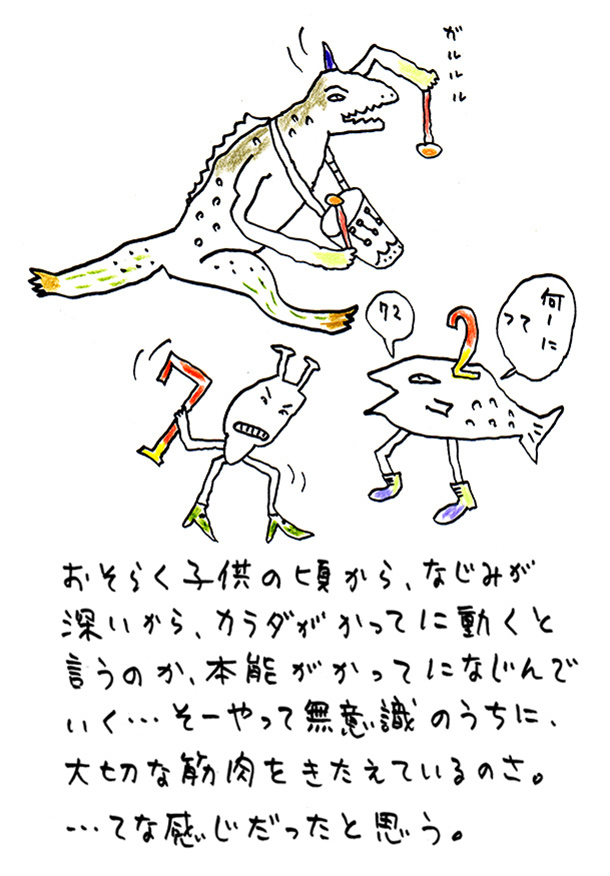 ガルルル
何ーに
って
72
2
7
おそらく子供の頃から、なじみが
深いから、カラダがかってに動くと
言うのか、本能がかってになじんで
いく…そーやって無意識のうちに、
大切な筋肉をきたえているのさ。
…てな感じだったと思う。